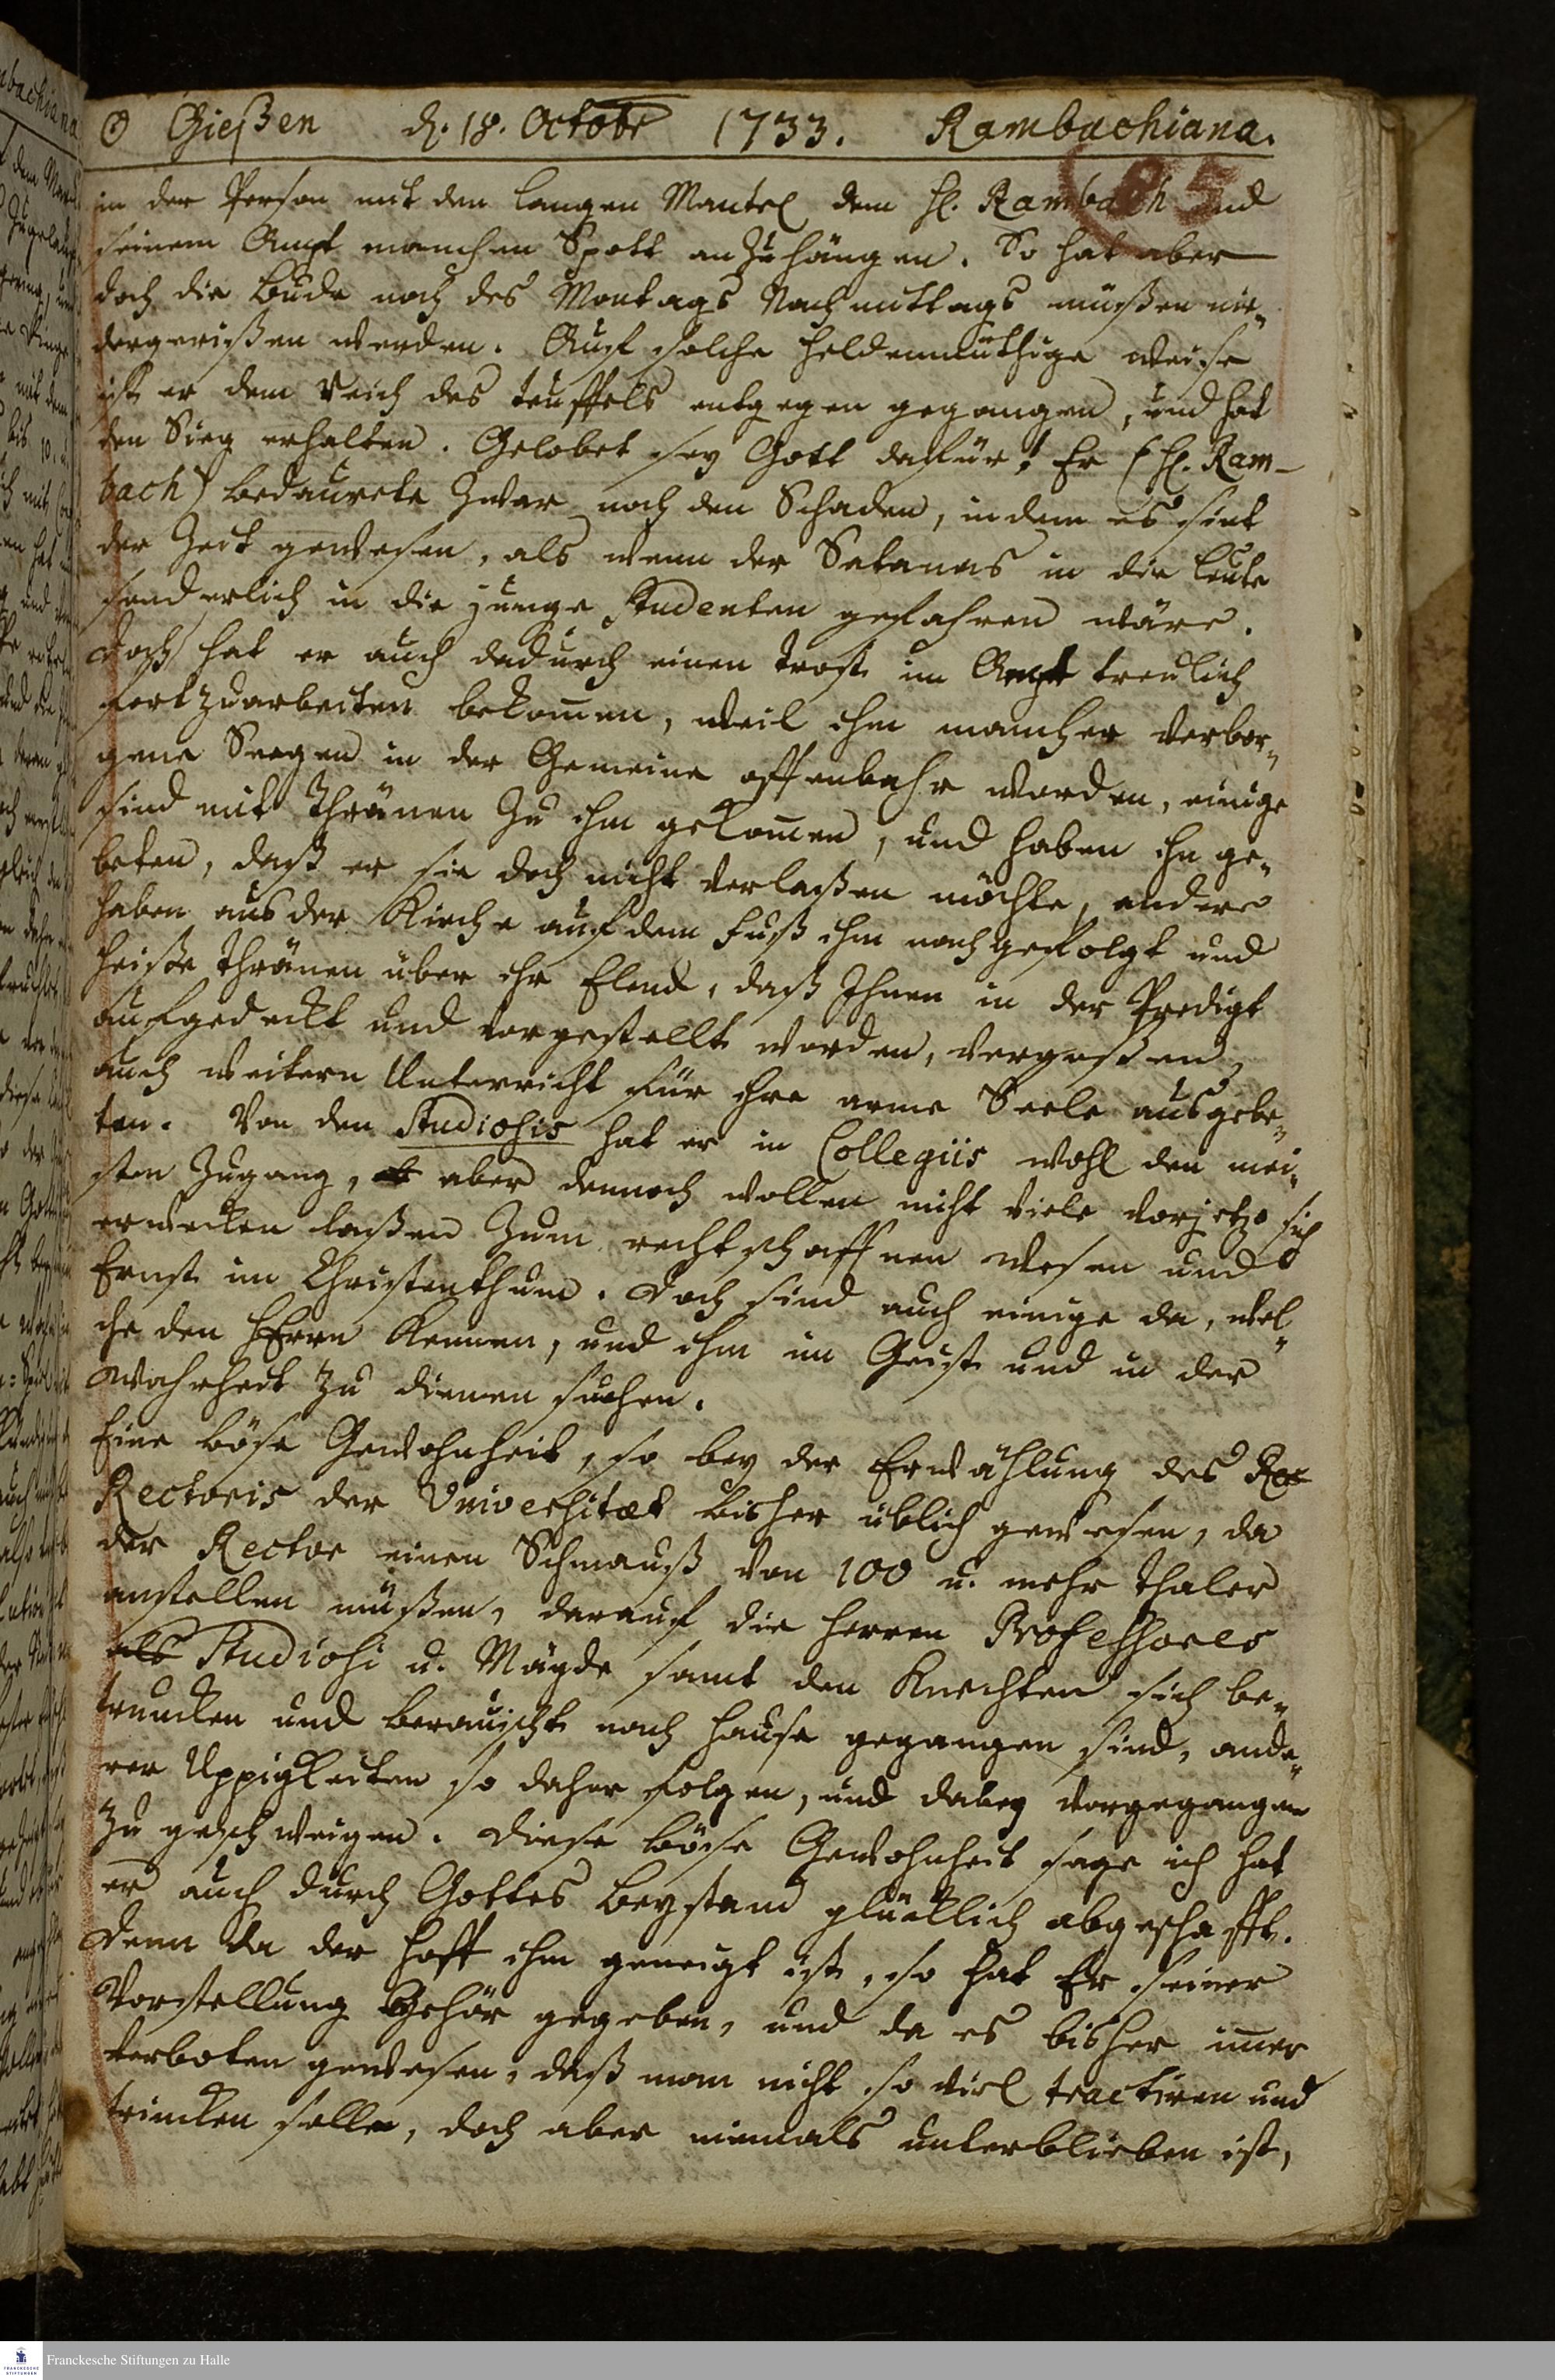 ☉ Gießen d. 18. Octobr 1733. Rambachiana.
85
in der Person mit dem langen Mantel dem H. Rambach und
seinem Ampt manchen Spott anzuhängen. So hat aber
doch die Bude noch des Montags Nachmittags müßen nie-
dergerißen werden. Auf solche heldenmüthige weise
ist er dem Reich des teuffels entgegen gegangen, und hat
den Sieg erhalten. Gelobet sey Gott dafür! Er (H. Ram-
bach) bedaurete zwar noch den Schaden, indem es sint
der Zeit gewesen, als wenn der Satanas in die Leute
sonderlich in die junge Studenten gefahren wäre.
Doch hat er auch dadurch einen trost im Ampt treulich
fortzuarbeiten bekom̄en, weil ihm mancher verbor-
gene Seegen in der Gemeine offenbahr worden, einige
sind mit Thränen zu ihm gekom̄en, und haben ihn ge-
beten, daß er sie doch nicht verlaßen möchte, andere
haben aus der Kirche auf dem Fuß ihm nachgefolgt und
heiße thränen über ihr Elend, daß Ihnen in der Predigt
aufgedeckt und vorgestellt worden, vergoßen,
auch weitern Unterricht für ihre arme Seele ausgebe-
ten. Von den Studiosis hat er in Collegiis wohl den mei-
sten Zugang, aber dennoch wollen nicht viele vorjetzo sich
erwecken laßen zum rechtschaffnen Wesen und
Ernst im Christenthum. Doch sind auch einige da, wel-
che den HErrn kennen, und ihm im Geist und in der
Wahrheit zu dienen suchen.
Eine böse Gewohnheit, so bey der Erwählung des Rec
Rectoris der Universitæt bisher üblich gewesen, da
der Rector einen Schmauß von 100 u. mehr thaler
anstellen müßen, darauf die Herren Professores
als Studiosi u. Mägde samt den Knechten sich be-
truncken und berauscht nach Hause gegangen sind, ande-
rer Uppigkeiten so daher folgen, und dabey vorgegangen
zu geschweigen. Diese böse Gewohnheit sage ich hat
er auch durch Gottes beystand glücklich abgeschafft.
Denn da der Hoff ihm geneigt ist, so hat Er seiner
Vorstellung Gehör gegeben, und da es bisher im̄er
verboten gewesen, daß man nicht so viel tractiren und
trincken solle, doch aber niemals unterblieben ist,
Franckesche Stiftungen zu Halle